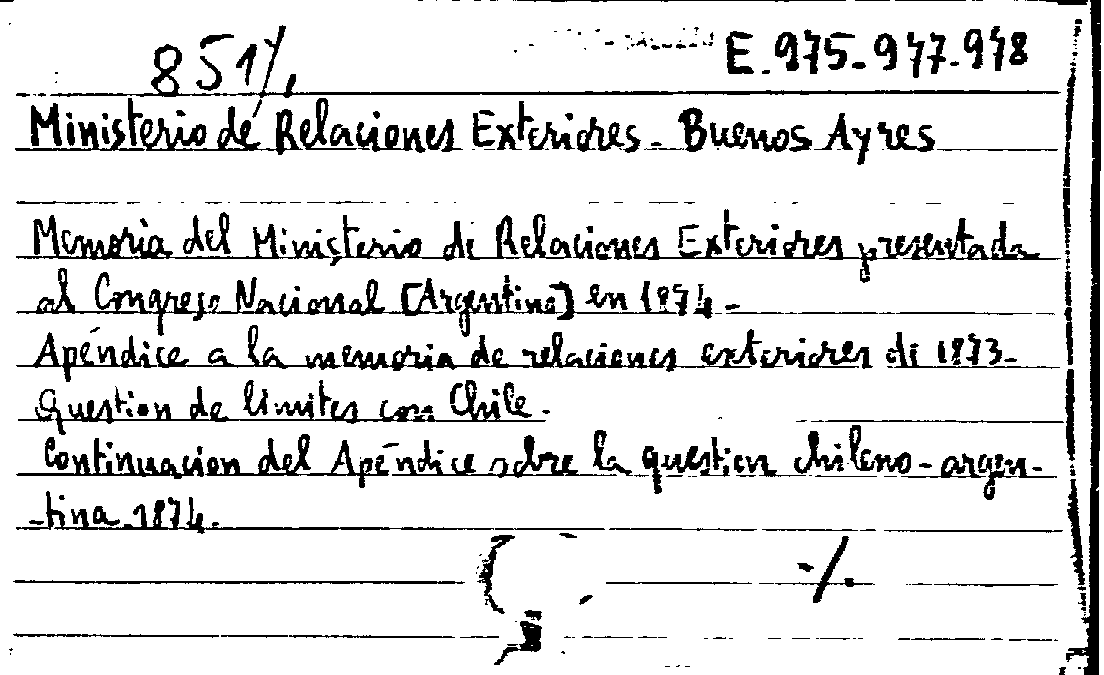 851%. E.975-977-978
Ministerio de Relaciones Exteriores - Buenos Ayres
Memoria del Ministerio de Relaciones Exteriores presentada
al Congreso Nacional [Argentino] en 1874 -
Apéndice a la memoria de relaciones exteriores de 1873-
Question de limites con Chile.
Continuacion del Apéndice sobre la question chileno-argen-
-tina. 1874.
-/.